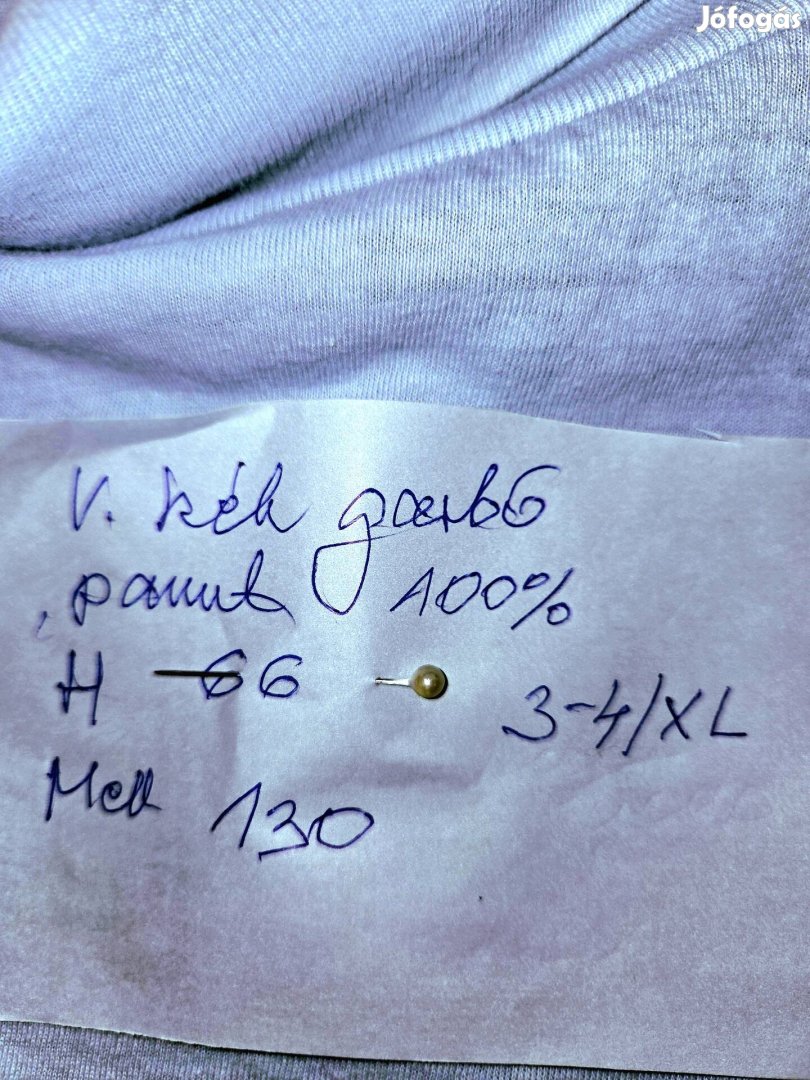 Jófogás
V. kék garbó
pamut 100%
H 66
3-4/XL
Mell 130